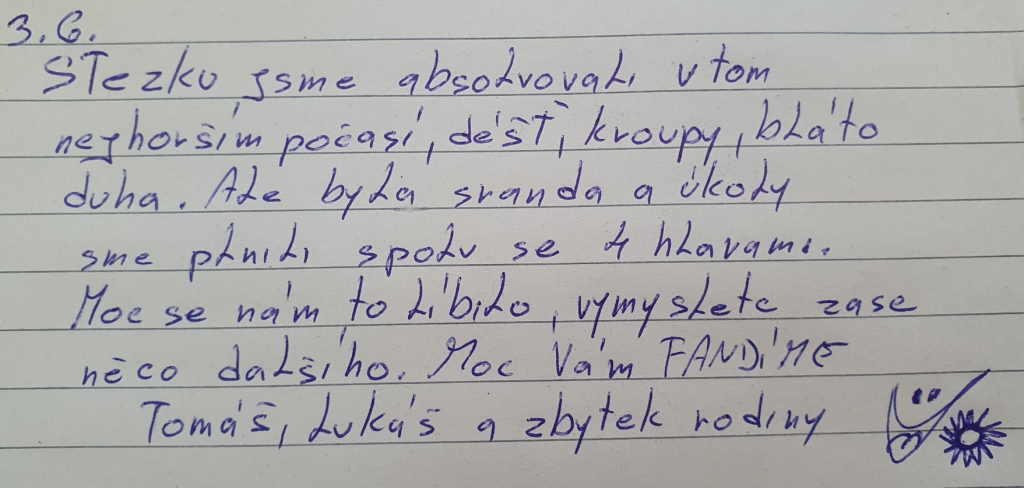 3.6.
Stezku jsme absolvovali v tom
nejhorším počasí, déšť, kroupy, bláto
duha. Ale byla sranda a úkoly
sme plnili spolu se 4 hlavami.
Moc se nám to líbilo, vymyslete zase
něco dalšího. Moc Vám FANDíME
Tomáš, Lukáš a zbytek rodiny